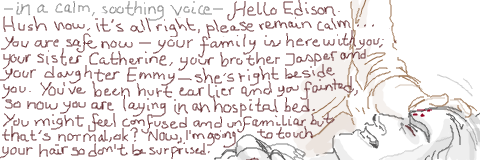 —in a calm, soothing voice— Hello Edison.
Hush now, it's all right, please remain calm...
You are safe now — your family is here with you;
your sister Catherine, your brother Jasper and
your daughter Emmy—she's right beside
you. You've been hurt earlier and you fainted,
so now you are laying in an hospital bed.
You might feel confused and unfamiliar but
that's normal, ok? Now, I'm going to touch
your hair so don't be surprised.